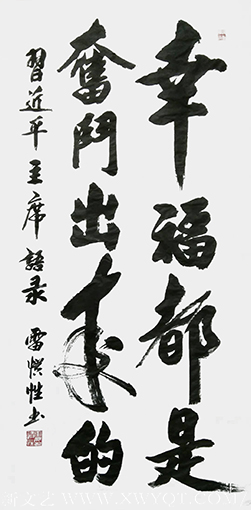 幸福都是
奮鬥出来的
習近平主席語录 雷
WWW.XWYOT.COM